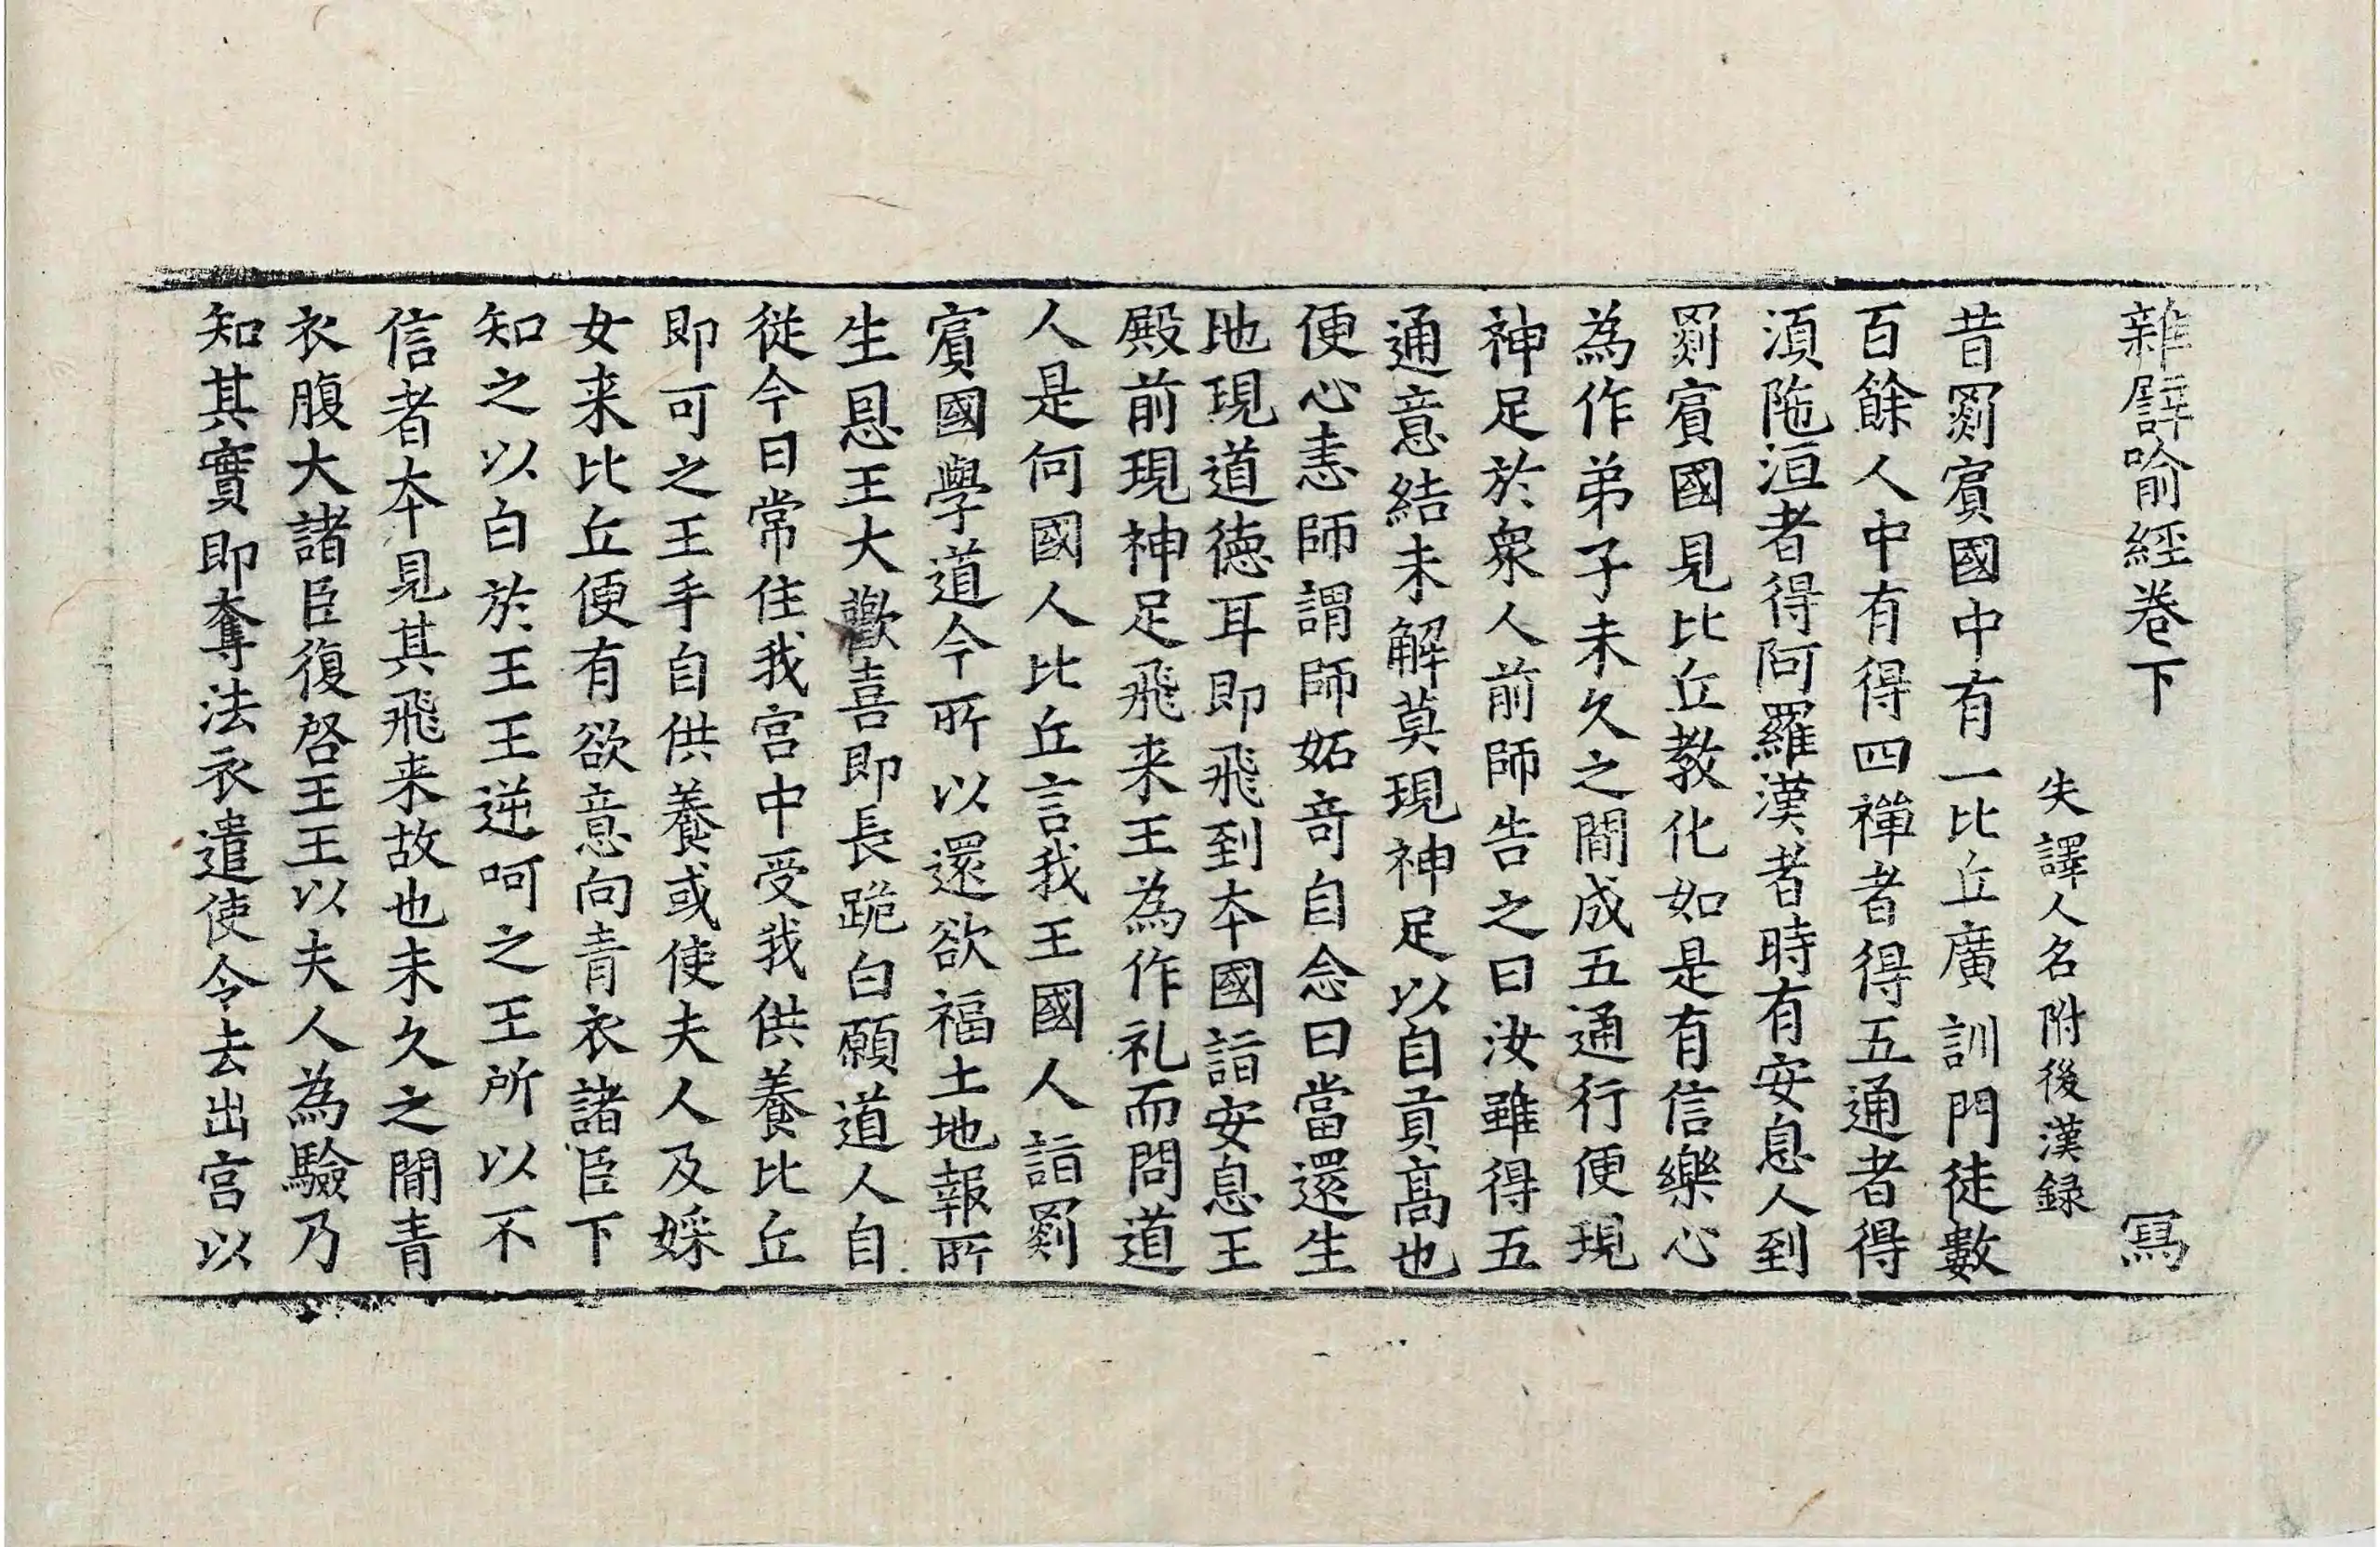 雜譬喻經卷下　寫
失譯人名附後漢録
昔罽賓國中有一比丘廣訓門徒數
百餘人中有得四禪者得五通者得
湏陁洹者得阿羅漢者時有安息人到
罽賓國見比丘教化如是有信樂心
為作弟子未久之間成五通行便現
神足於衆人前師告之曰汝雖得五
通意結未解莫現神足以自貢髙也
便心恚師謂師妬竒自念曰當還生
地現道德耳即飛到本國詣安息王
殿前現神足飛来王為作礼而問道
人是何國人比丘言我王國人詣罽
賓國學道今所以還欲福土地報所
生恩王大歡喜即長跪白願道人自
從今日常住我宫中受我供養比丘
即可之王手自供養或使夫人及婇
女来比丘便有欲意向青衣諸臣下
知之以白於王王逆呵之王所以不
信者本見其飛来故也未久之間青
衣腹大諸臣復啓王王以夫人為驗乃
知其實即奪法衣遣使令去出宫以